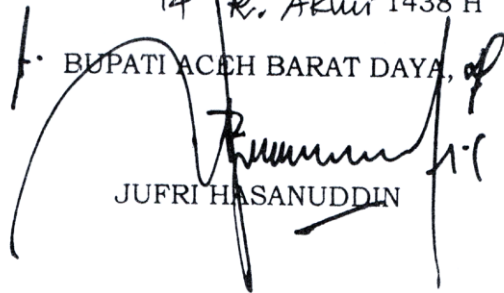 14 R. Akhir 1438 H
BUPATI ACEH BARAT DAYA,
JUFRI HASANUDDIN